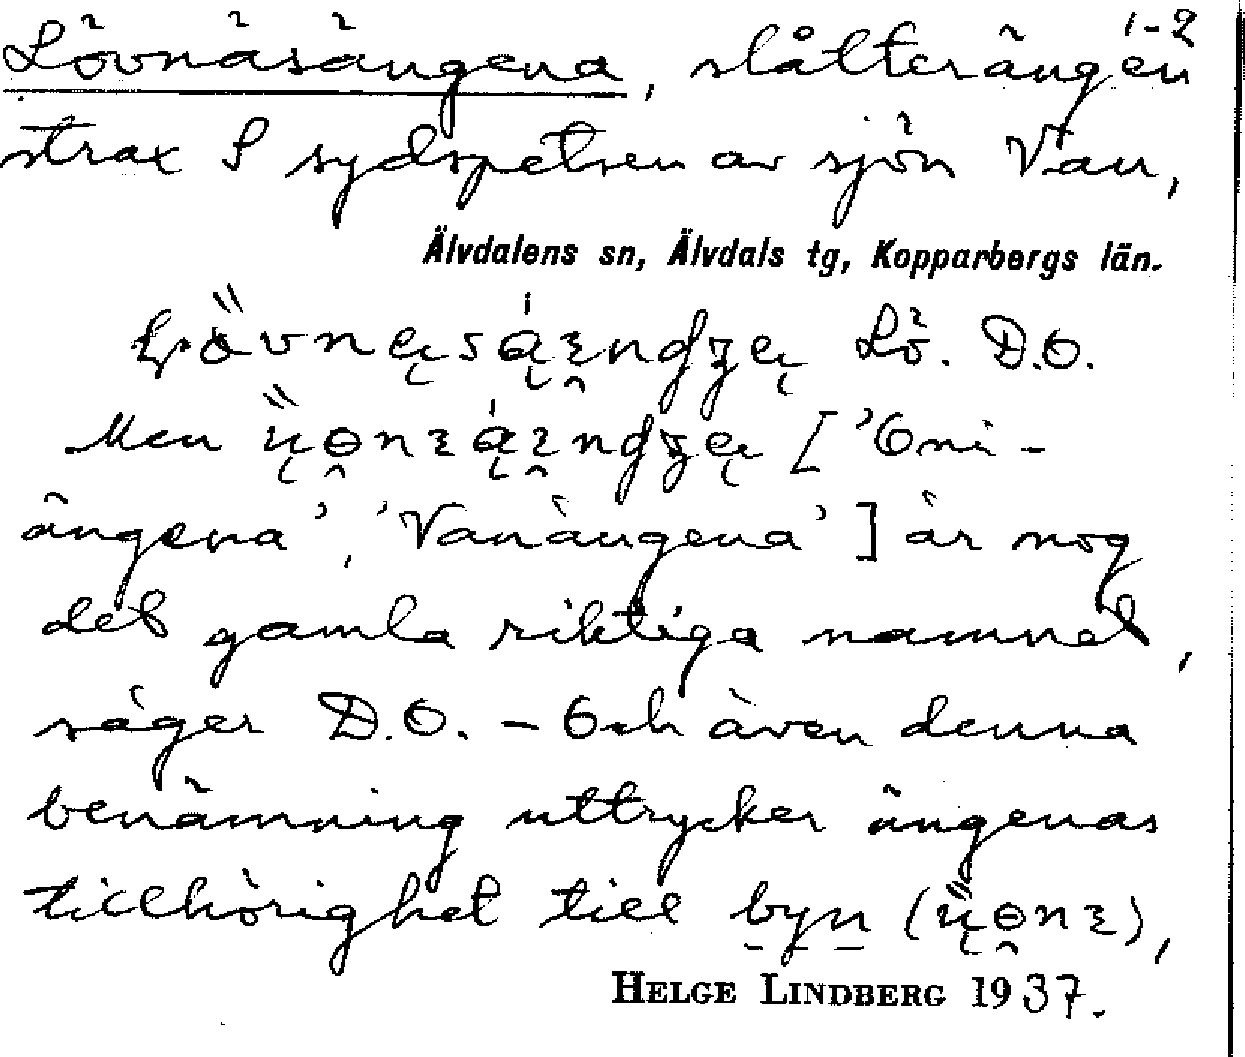 Lövnäsängena, slåtterängen 1-2
strax S sydspetsen av sjön Van,
Älvdalens sn, Älvdals tg, Kopparbergs län.
Lö. D.O.
Men [’Oni-
ängena’, ’Vanängena’] är nog
det gamla riktiga namnet,
säger D.O. – Och även denna
benämning uttrycker ängenas
tillhörighet till byn
HELGE LINDBERG 1937.